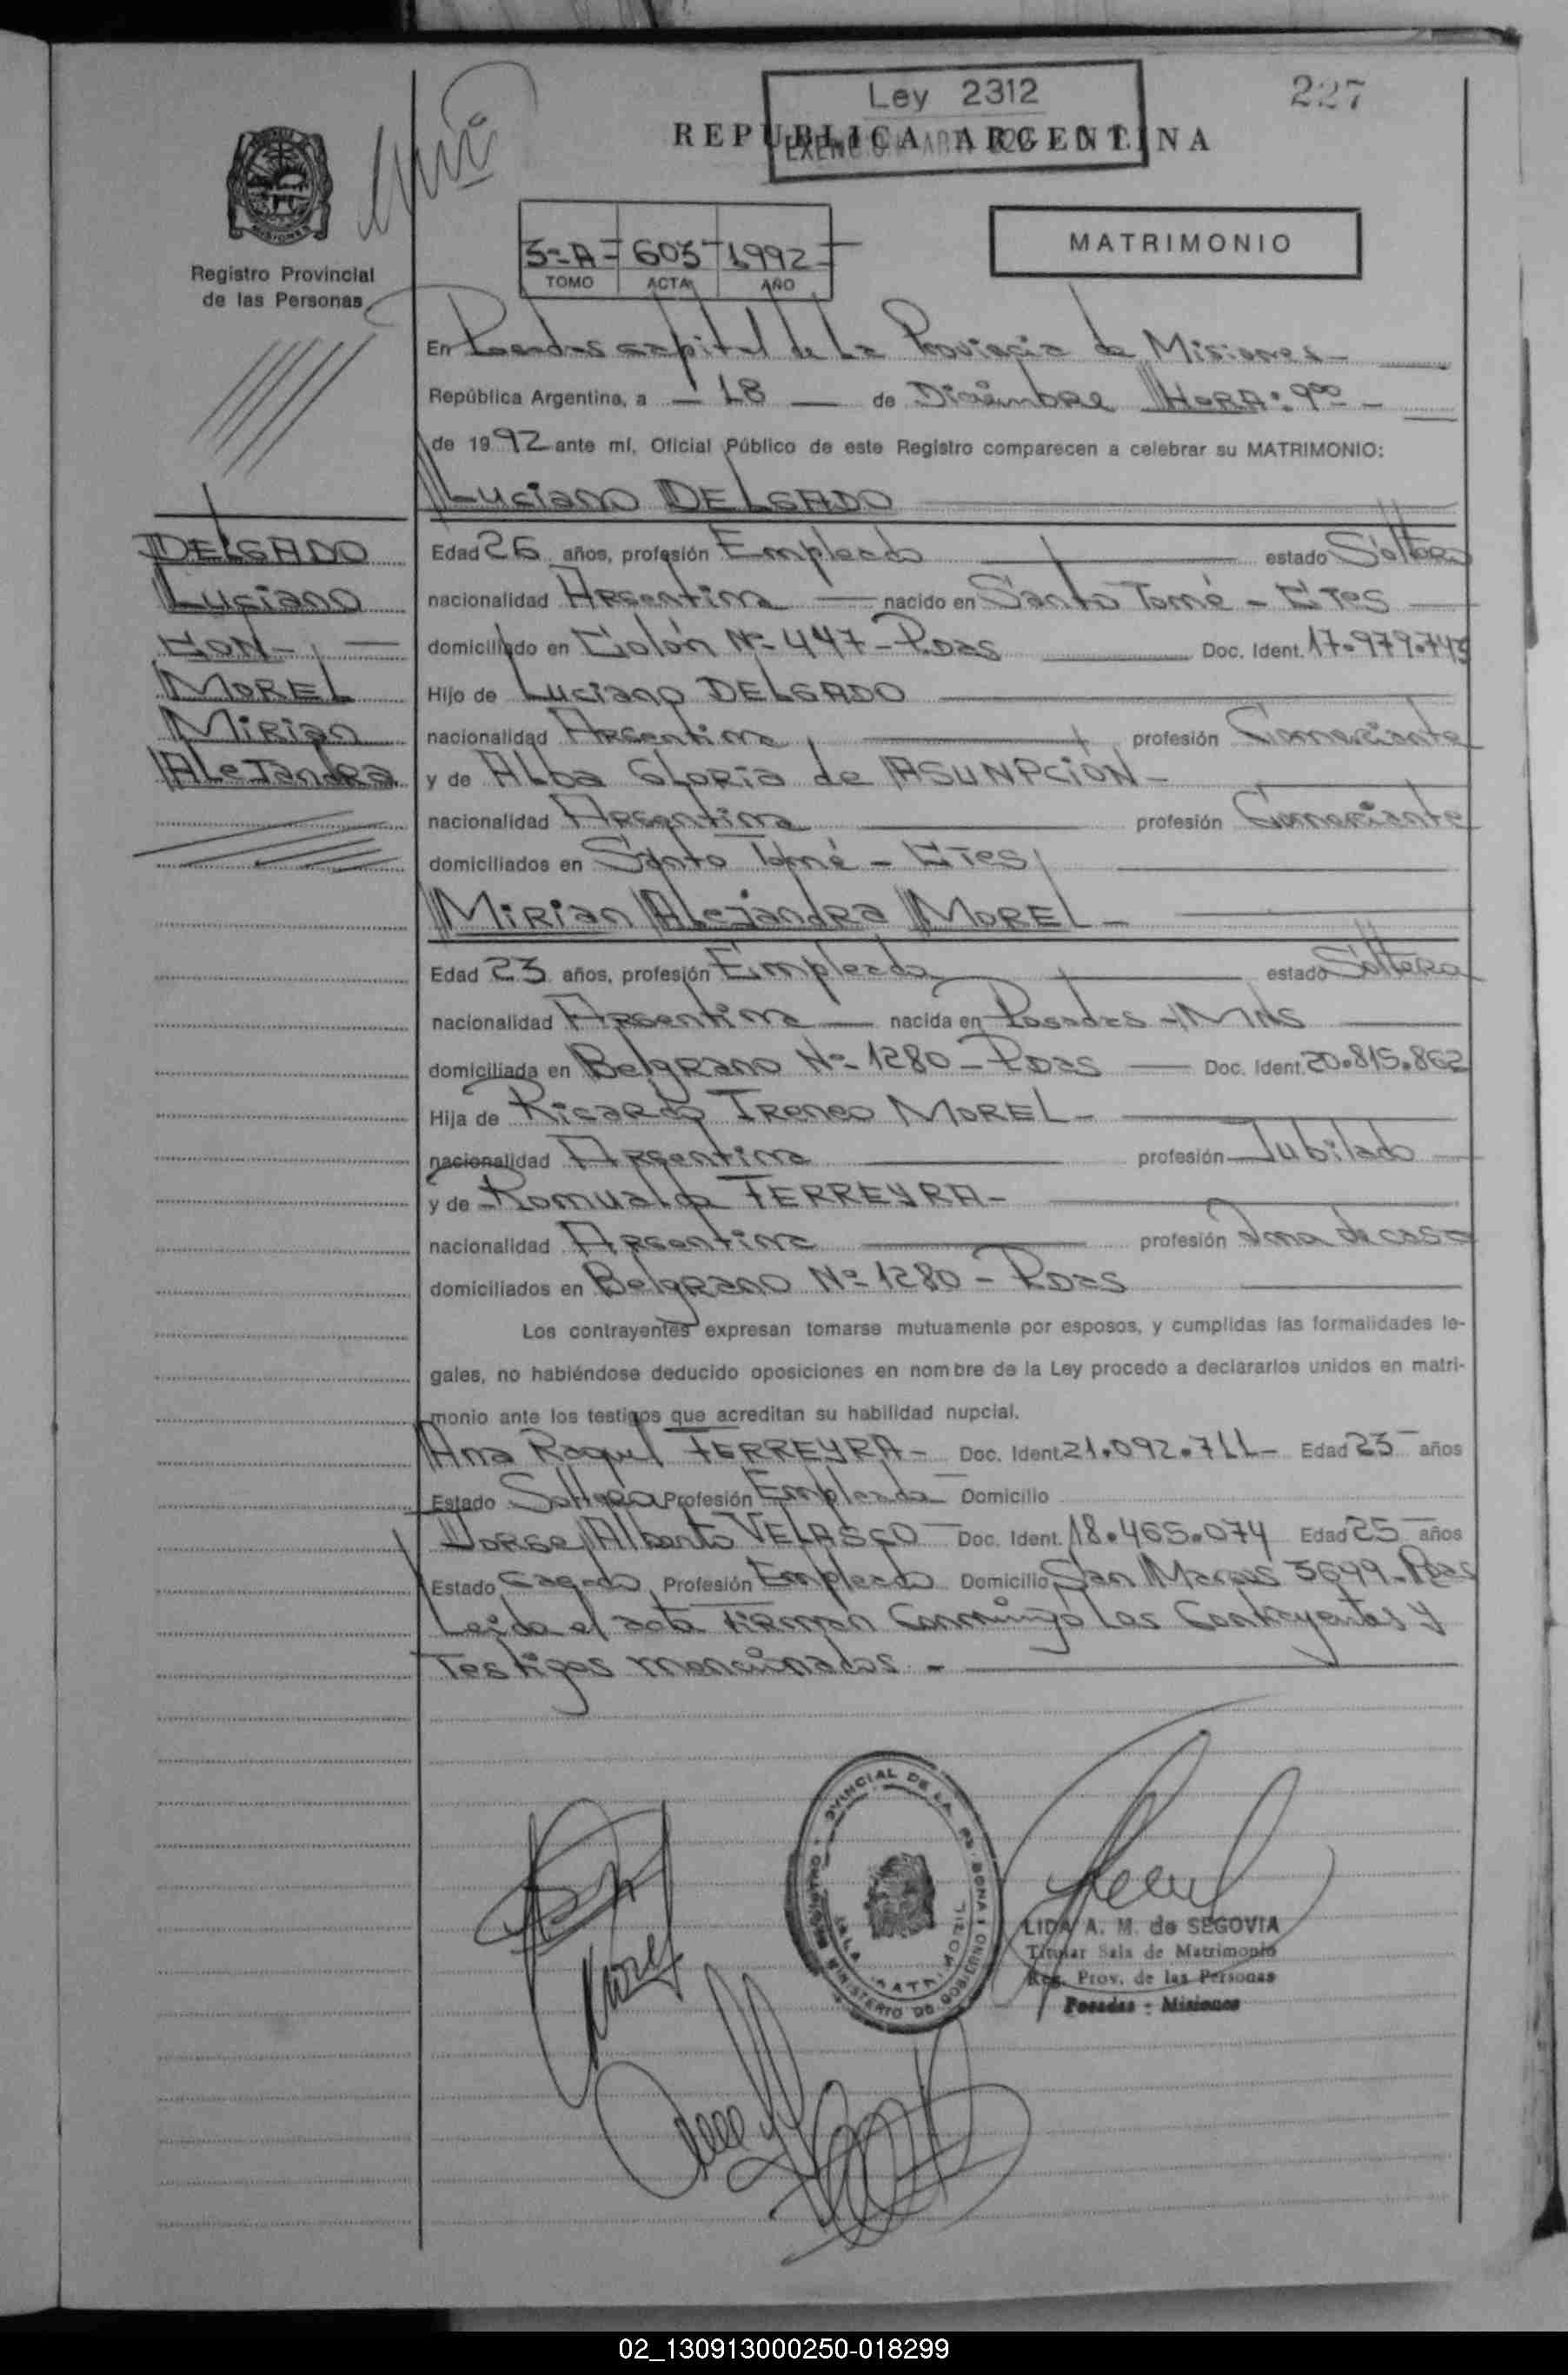 227
Ley 2312
REPUBLICA ARGENTINA
MATRIMONIO
Registro Provincial
de las Personas
3-A- 605 1992-
TOMO ACTA AÑO
En Posadas capital de La Provincia de Misiones-
República Argentina, a - 18 - de Diciembre HORA: 9⁰⁰ -
de 1992 ante mí, Oficial Público de este Registro comparecen a celebrar su MATRIMONIO:
Luciano DELGADO
DELGADO
Luciano
CON-
MOREL
Mirian
Alejandra
Edad 26 años, profesión Empleado estado Soltero
nacionalidad Argentina nacido en Santo Tomé - CTES
domiciliado en Colón Nº 447 - Pdas Doc. Ident. 17.979.745
Hijo de Luciano DELGADO
nacionalidad Argentina profesión Comerciante
y de Alba Gloria de ASUNPCION-
nacionalidad Argentina profesión Comerciante
domiciliados en Santo Tomé - CTES
Mirian Alejandra MOREL -
Edad 23 años, profesión Empleada estado Soltera
nacionalidad Argentina nacida en Posadas - Mns
domiciliada en Belgrano Nº 1280 - Pdas Doc. Ident. 20.815.862
Hija de Ricardo Ireneo MOREL -
nacionalidad Argentina profesión Jubilado
y de Romualda FERREYRA-
nacionalidad Argentina profesión Ama de casa
domiciliados en Belgrano Nº 1280 - Pdas
Los contrayentes expresan tomarse mutuamente por esposos, y cumplidas las formalidades le-
gales, no habiéndose deducido oposiciones en nombre de la Ley procedo a declararlos unidos en matri-
monio ante los testigos que acreditan su habilidad nupcial.
Ana Raquel FERREYRA - Doc. Ident. 21.092.711- Edad 23 años
Estado Soltera Profesión Empleada Domicilio
Jorge Alberto VELASCO Doc. Ident. 18.465.074 Edad 25 años
Estado Casado Profesión Empleado Domicilio San Marcos 3649 - Pdas
Leida el acta Firman Conmigo Los Contrayentes y
Testigos mencionados -
LIDA A. M. de SEGOVIA
Titular Sala de Matrimonio
Reg. Prov. de las Personas
Posadas - Misiones
02_130913000250-018299